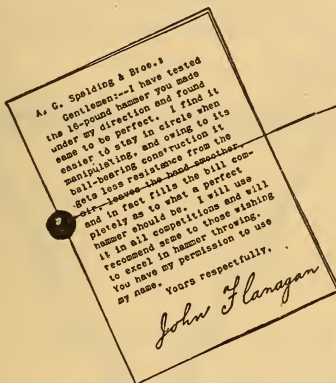 A. G. Spelding & Broe.:
Gentlemen:--I have tested
the 16-pound hammer you made
under my direction and found
same to be perfect. I find it
easier to stay in circle when
manipulating, and owing to its
ball-bearing construction it
gets less resistance from the
air, leaves the hand smoother,
and in fact fills the bill com-
pletely as to what a perfect
hammer should be. I will use
it in all competitions and will
recommend seme to those wishing
to excel in hammer throwing.
You have my permission to use
my name.
Yours respectfully,
John Flanagan